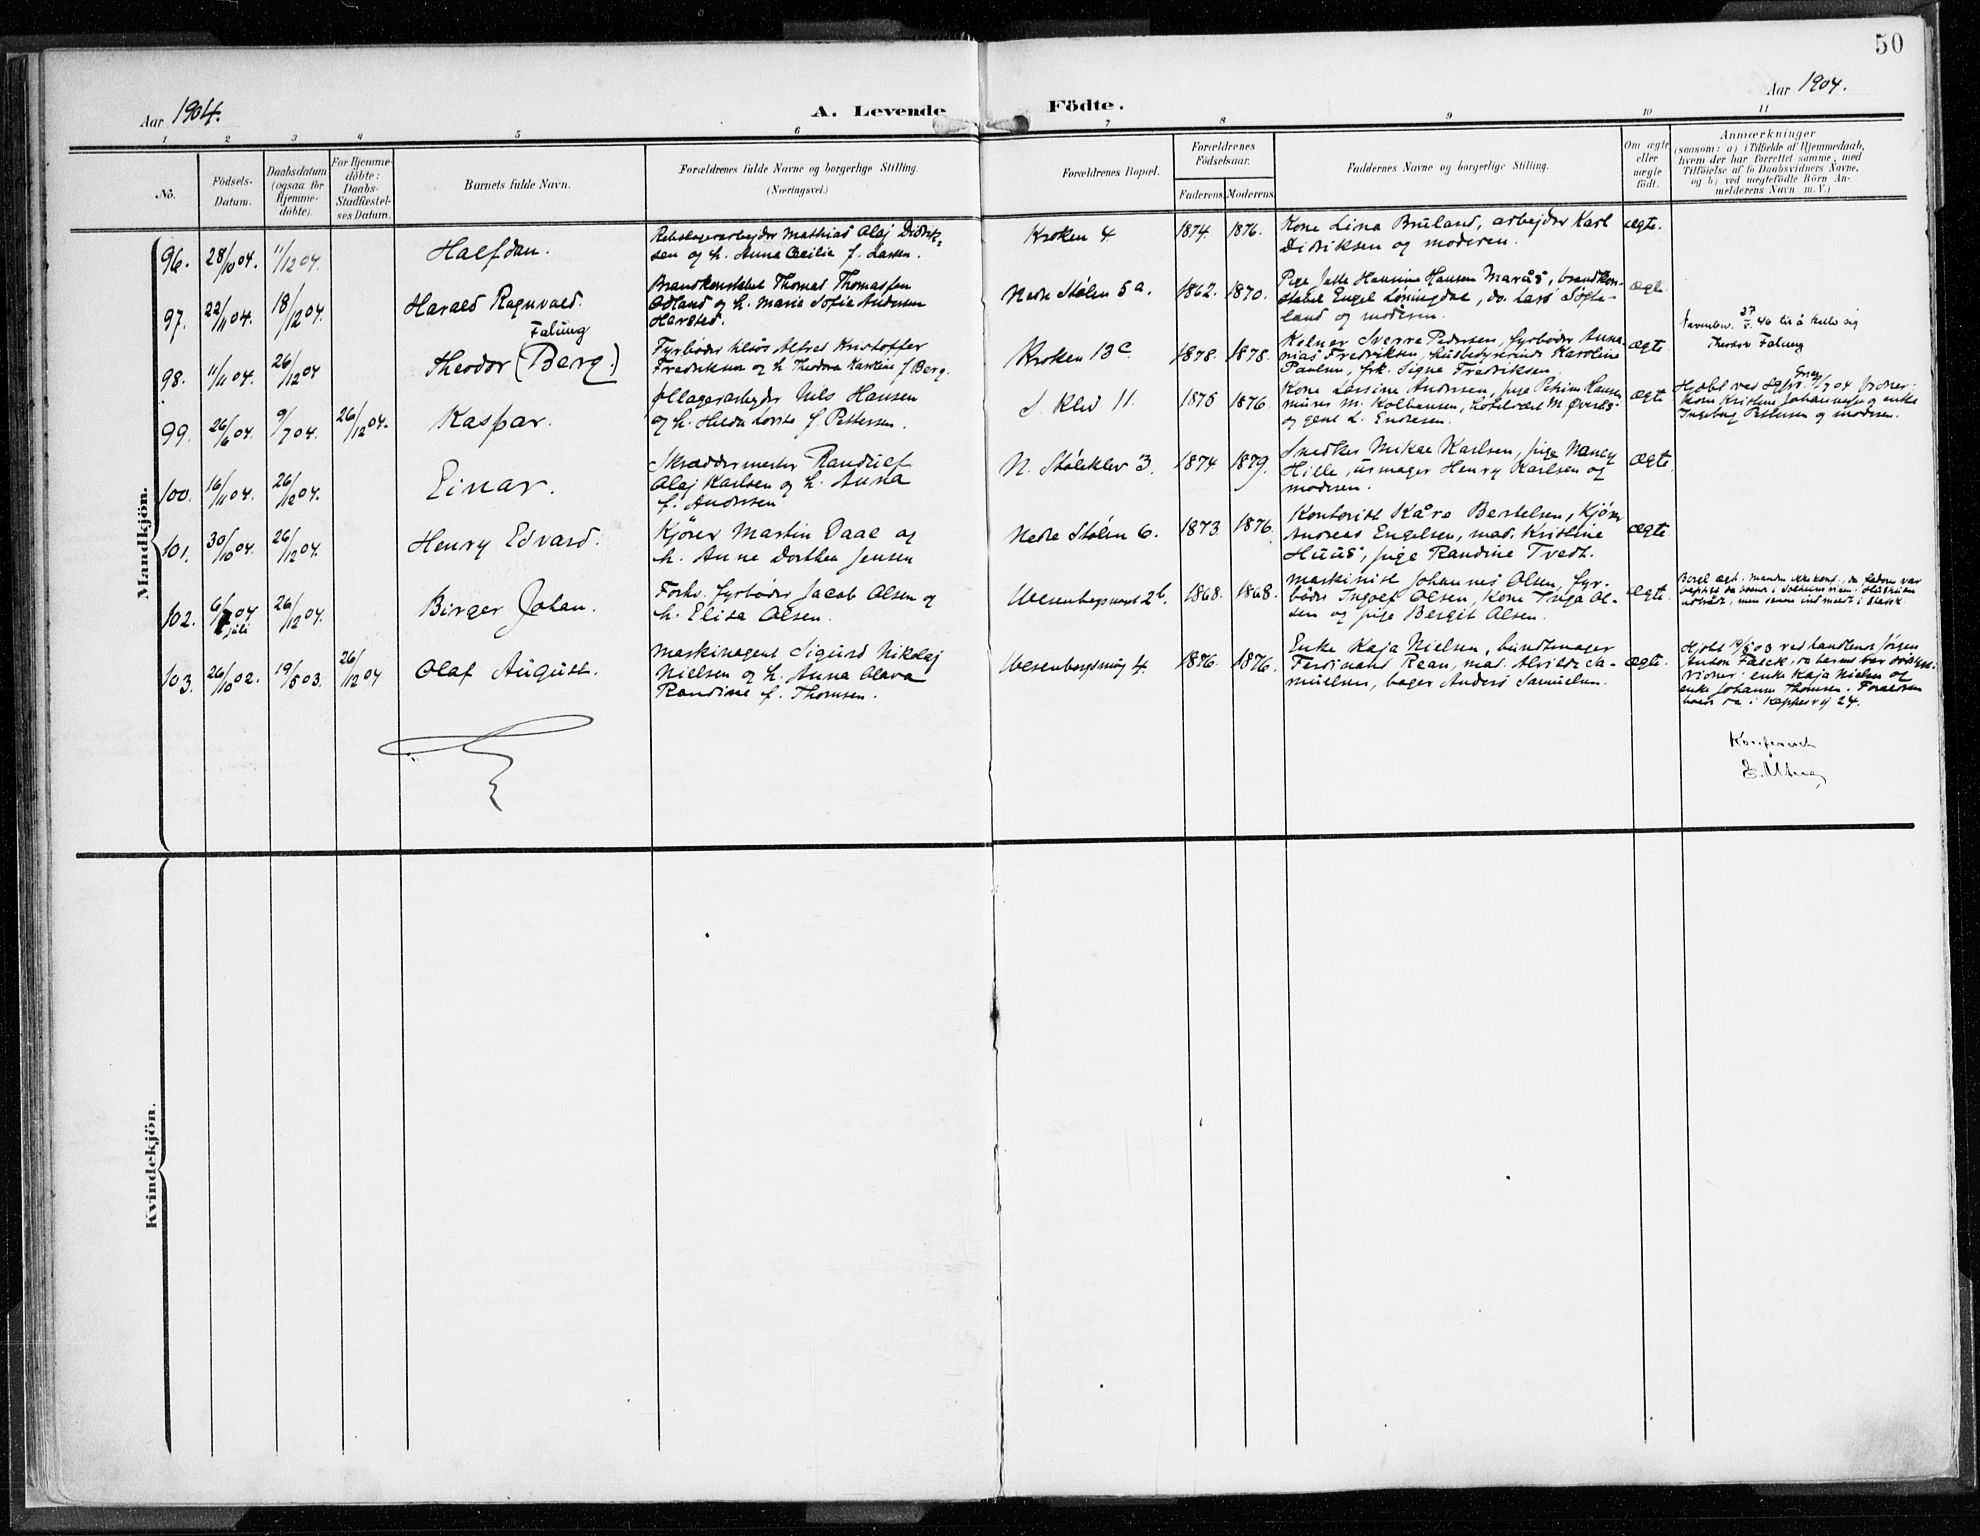 50
Aar 1904.
A. Levende Födte.
Aar 1904.
1 2 3 4 5 6 7 8 9 10 11
No.
Födsels-
Datum.
Daabsdatum
(ogsaa for
Hjemme-
döbte).
For Hjemme-
döbte:
Daabs-
Stadfæstel-
ses Datum.
Barnets fulde Navn.
Forældrenes fulde Navne og borgerlige Stilling.
(Næringsvei.)
Forældrenes Bopæl.
Forældrenes
Födselsaar.
Faderens. Moderens.
Faddernes Navne og borgerlige Stilling.
Om ægte
eller
uægte
födt.
Anmærkninger
(saasom: a) i Tilfælde af Hjemmedaab,
hvem der har forrettet samme, med
Tilföielse af to Daabsvidners Navne,
og b) ved uægtefödte Börn An-
melderens Navn m. V.)
Mandkjön.
96. 28/10 04. 11/12 04. Halfdan.
Rebslagerarbejder Mathias Olaj Didrik-
sen og h. Anna Cecilia f. Larsen.
Kroken 4. 1874. 1876.
Kone Lina Bruland, arbejder Karl
Didriksen og moderen.
ægte.
97. 22/11 04. 18/12 04. Harald Ragnvald.
Brandkonstabel Thomas Thomassen
Ødland og h. Marie Sofie Andersen
Harsted.
Nedre Stølen 5a. 1862. 1870.
Pige Jette Hansine Hansen Marås, brandkon-
stabel Engel Løningdal, do. Lars Sogte-
land og moderen.
ægte
98. 11/11 04. 26/12 04
Falung
Theodor (Berg.)
Fyrbøder tilsjøs Alfred Kristoffer
Fredriksen og h. Theodora Karoline f. Berg.
Kroken 13c. 1878. 1878.
Kelner Sverre Pedersen, fyrbøder Anna-
nias Fredriksen, husbestyrerinde Karoline
Paulsen, frk. Signe Fredriksen.
ægte
27/5. 46 til å kalle sig
Theodor Falung
99. 26/6 04. 9/7 04. 26/12 04. Kaspar.
Øllagerarbejder Nils Hansen
og h. Hilda Lovise f. Pettersen.
S. Klev 11. 1875 1876.
og gene L. Endresen.
ægte
Kone Kristine Johannesen og enke
Ingeborg Pettersen og moderen.
100. 16/11 04. 26/12 04. Einar.
Skræddermester Randulf
Olaj Karlsen og h. Anna
f. Andersen
N. Stølekler 3. 1874 1879.
Snedker Mikal Karlsen, pige Nancy
Hille, urmager Henry Karlsen og
moderen.
ægte.
101. 30/10 04. 26/12 04. Henry Edvard.
Kjører Martin Daae og
h. Anne Dorthea Jensen
Nedre Stølen 6. 1873. 1876.
Kontorist Kåre Bertelsen, Kjører
Andreas Engelsen, mad. Kristine
Huus, pige Randine Tvedt.
ægte
102. 6/7 04 26/12 04.
juli
Birger Johan.
Forhv. fyrbøder Jacob Olsen og
h. Elisa Olsen.
Wesenbergsmuet 2b. 1868. 1868.
Maskinist Johannes Olsen, fyr-
bøder Ingolf Olsen, Kone Inga Ol-
sen og pige Bergit Olsen.
ægte.
103. 26/10 02. 19/5 03. 26/12 04 Olaf August.
Maskinagent Sigurd Nikolaj
Nielsen og h. Anna Olava
Randine f. Thomsen.
Wesenbergsmug 4. 1876. 1876.
Enke Kaja Nielsen, bundtmager
Ferdinand Rean, mad. Alvilde Sa-
muelsen, bager Anders Samuelsen.
ægte.
Hjdbt 19/5 03 ved handlende Jørgen
Anton Falck, da barnet var
vidner: enke Kaja Nielsen og
enke Johanne Thomsen. Forældrene
boede da i Kappesvej 24.
Konfereret
Kvindekjön.